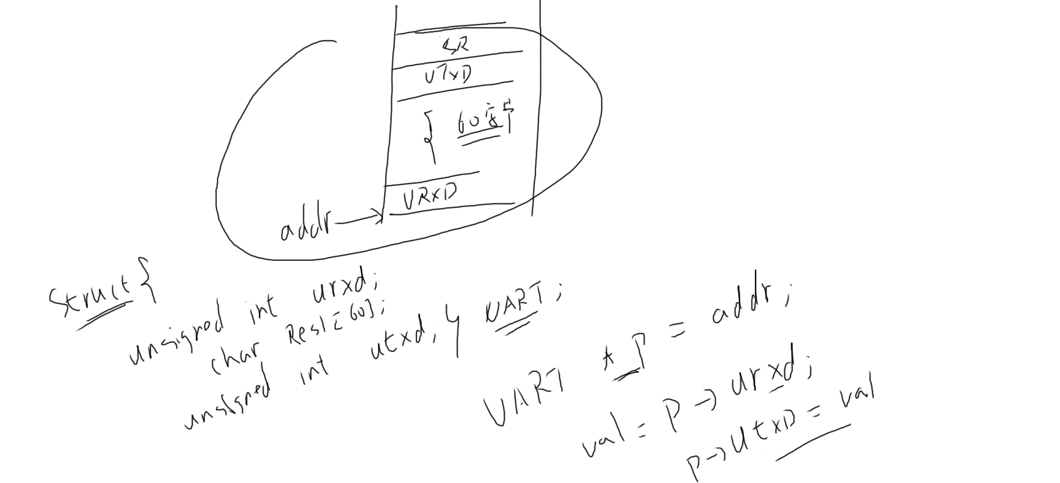 SR
UTxD
{ 60字节
URxD
addr
Struct {
unsigned int urxd;
char Res1[60];
unsigned int utxd, } UART;
UART *P = addr;
val = P -> urxd;
P -> UtxD = val